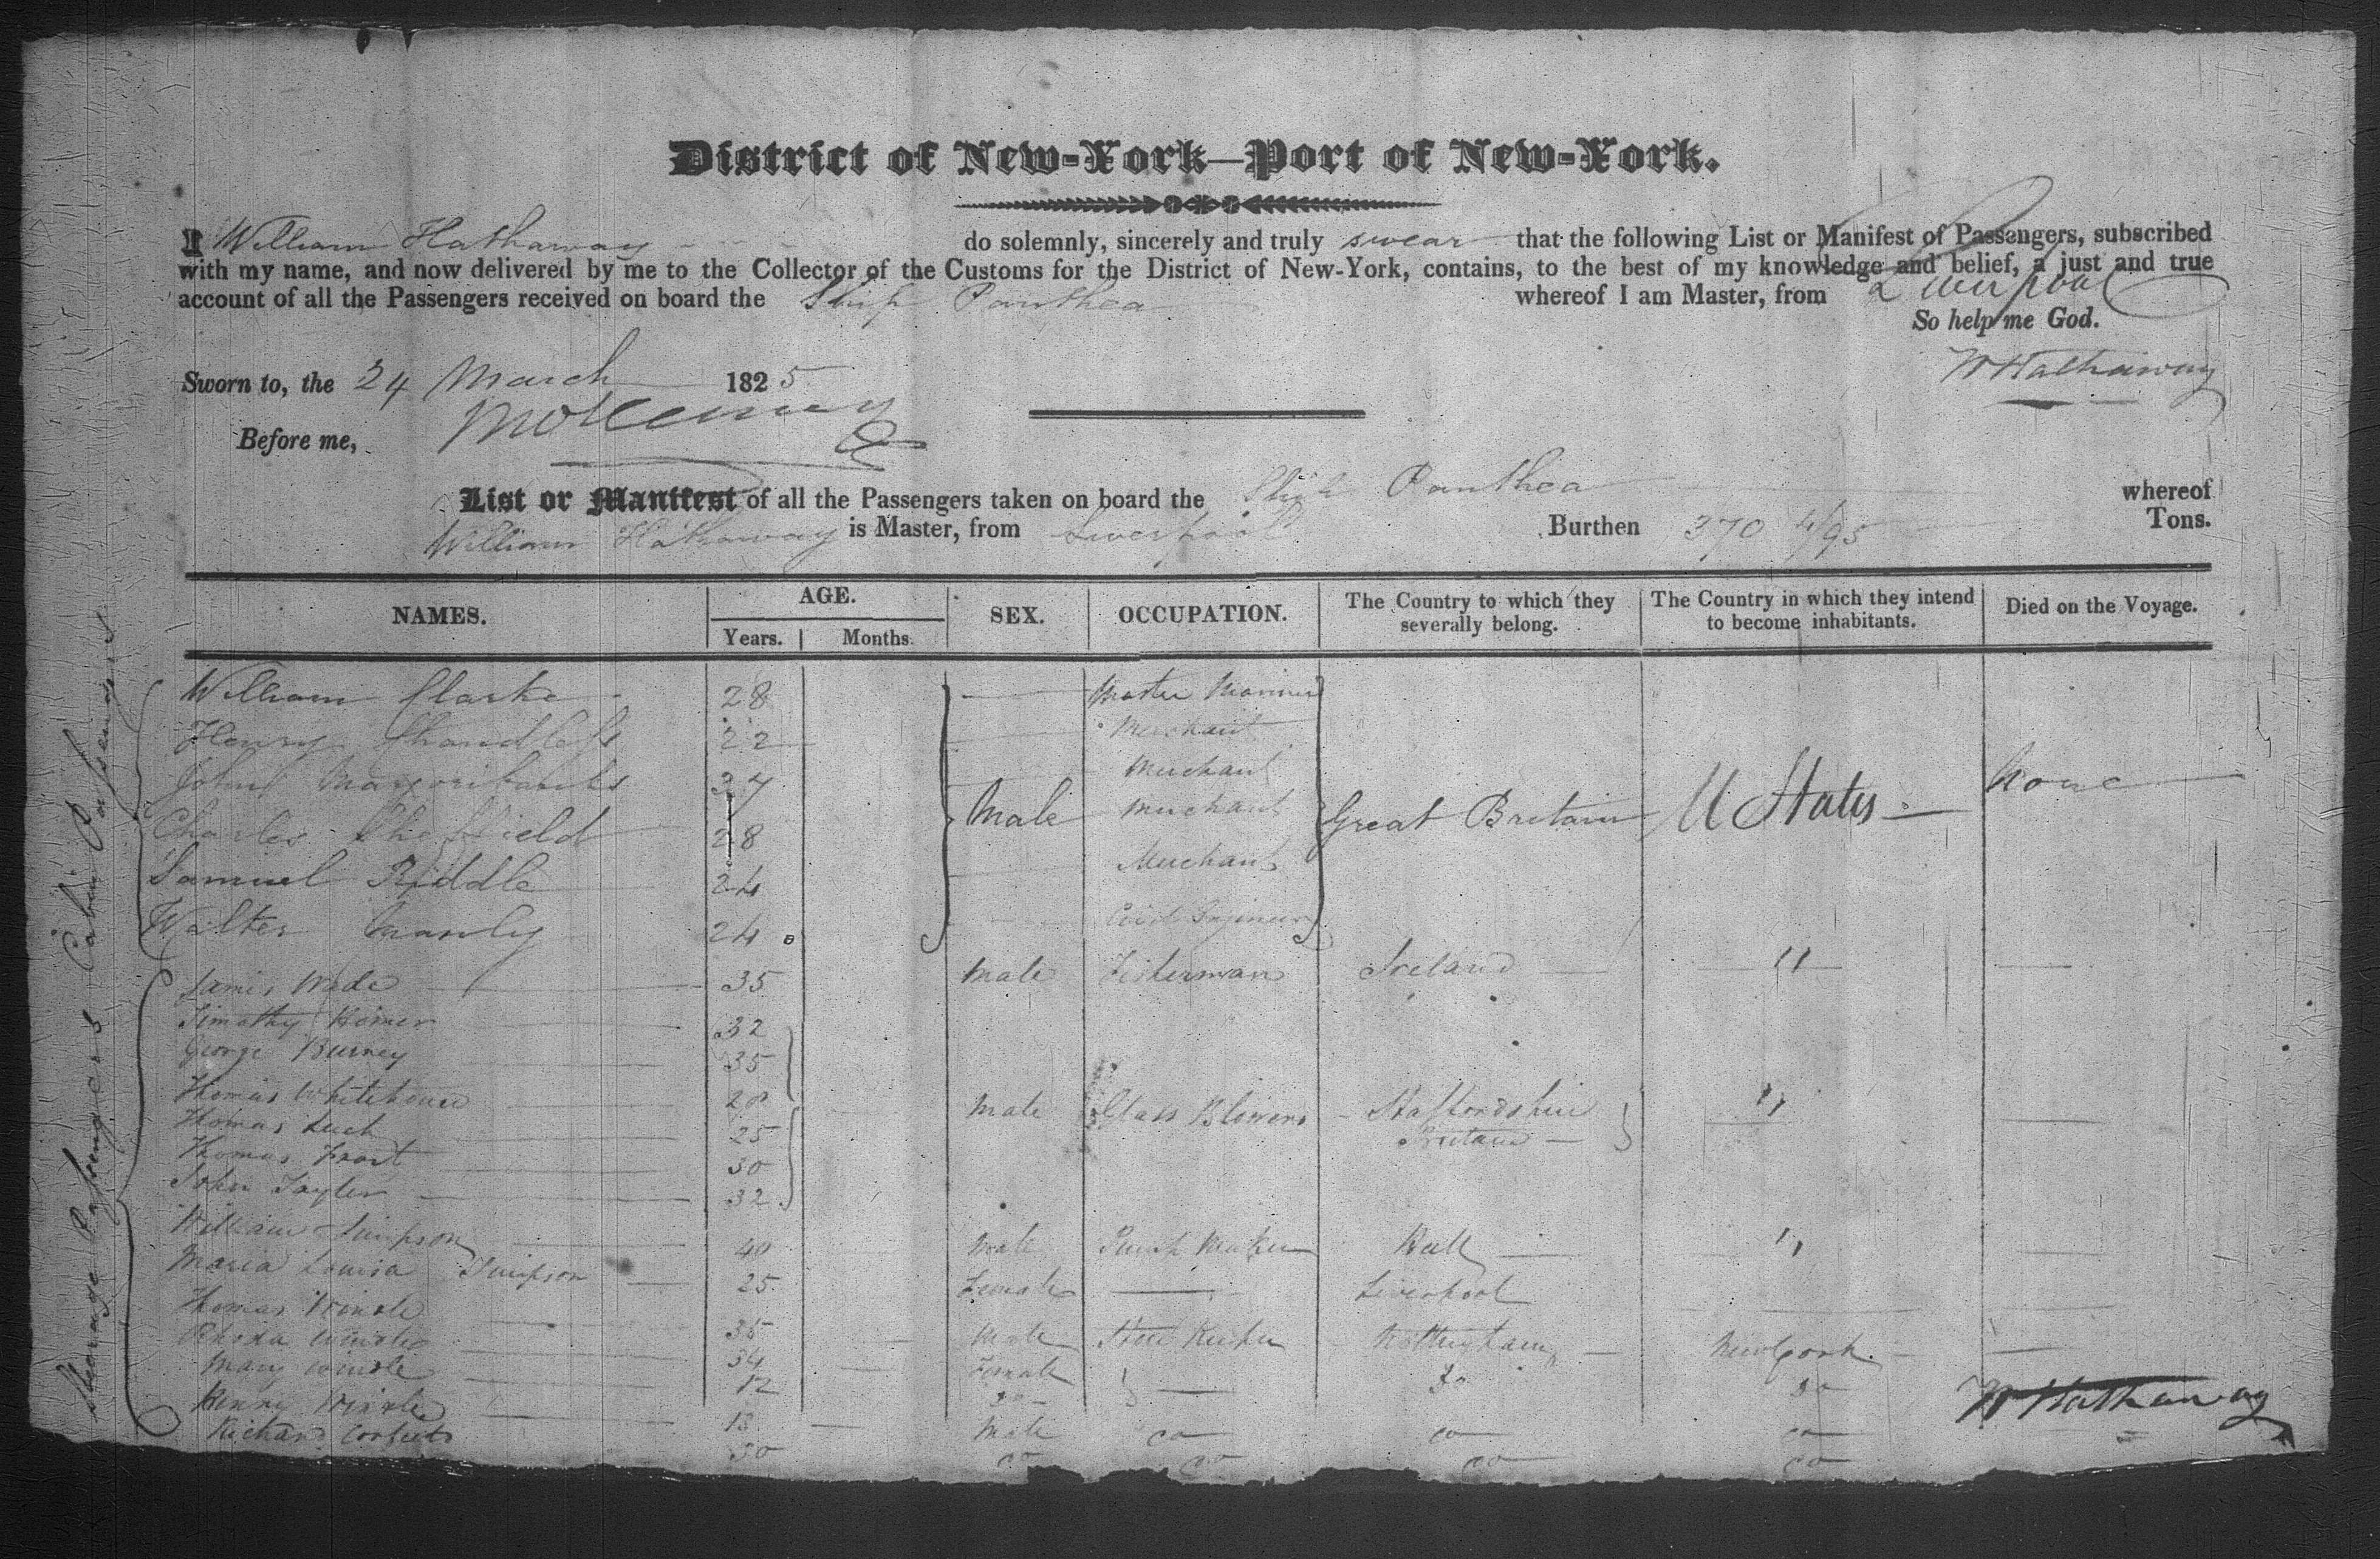 District of New-York—Port of New-York.
I William Hathaway do solemnly, sincerely and truly swear that the following List or Manifest of Passengers, subscribed
with my name, and now delivered by me to the Collector of the Customs for the District of New-York, contains, to the best of my knowledge and belief, a just and true
account of all the Passengers received on board the Ship Panthea whereof I am Master, from Liverpool
So help me God.
W Hathaway
Sworn to, the 24 March 1825
Before me,
List or Manifest of all the Passengers taken on board the Ship Panthea whereof
William Hathaway is Master, from Liverpool Burthen 370 4/95 Tons.
NAMES. AGE. Years. Months. SEX. OCCUPATION. The Country to which they severally belong. The Country in which they intend to become inhabitants. Died on the Voyage.
Cabin Passengers
William Clarke 28 Master Mariner
Henry Chandless 22 Merchant
John Marjoribanks Merchant
Charles Sheffield 28 Male Merchant Great Britain U States None
Samuel Riddle 24 Merchant
Walter 24 Civil Engineer
Steerage Passengers
James Wade 35 Male Fisherman Ireland "
Timothy 32
George Burney 35
Thomas Whitehouse 28
Thomas 25 Male Glass Blowers Staffordshire "
Thomas Frost 30 Britain
John Tayler 32
William Simpson 40 Male Hull "
Maria Louisa Simpson 25 Female Liverpool
Thomas Windle 35 Male Nottingham New York
Rhoda Windle 34 Female Do Do
Mary Windle 12 Do
Henry Windle 13 Male Do Do Do
Richard 30 Do Do Do Do
W Hathaway